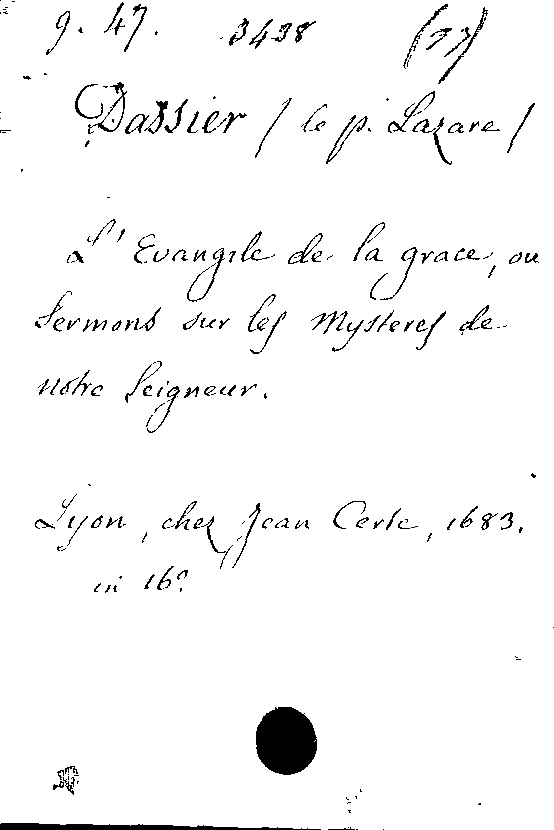 9. 47. 3438 (77)
Dassier / le p. Lazare /
L' Evangile de la grace, ou
Sermons sur les Mysteres de
notre Seigneur.
Lyon, chez Jean Certe, 1683.
in 16º